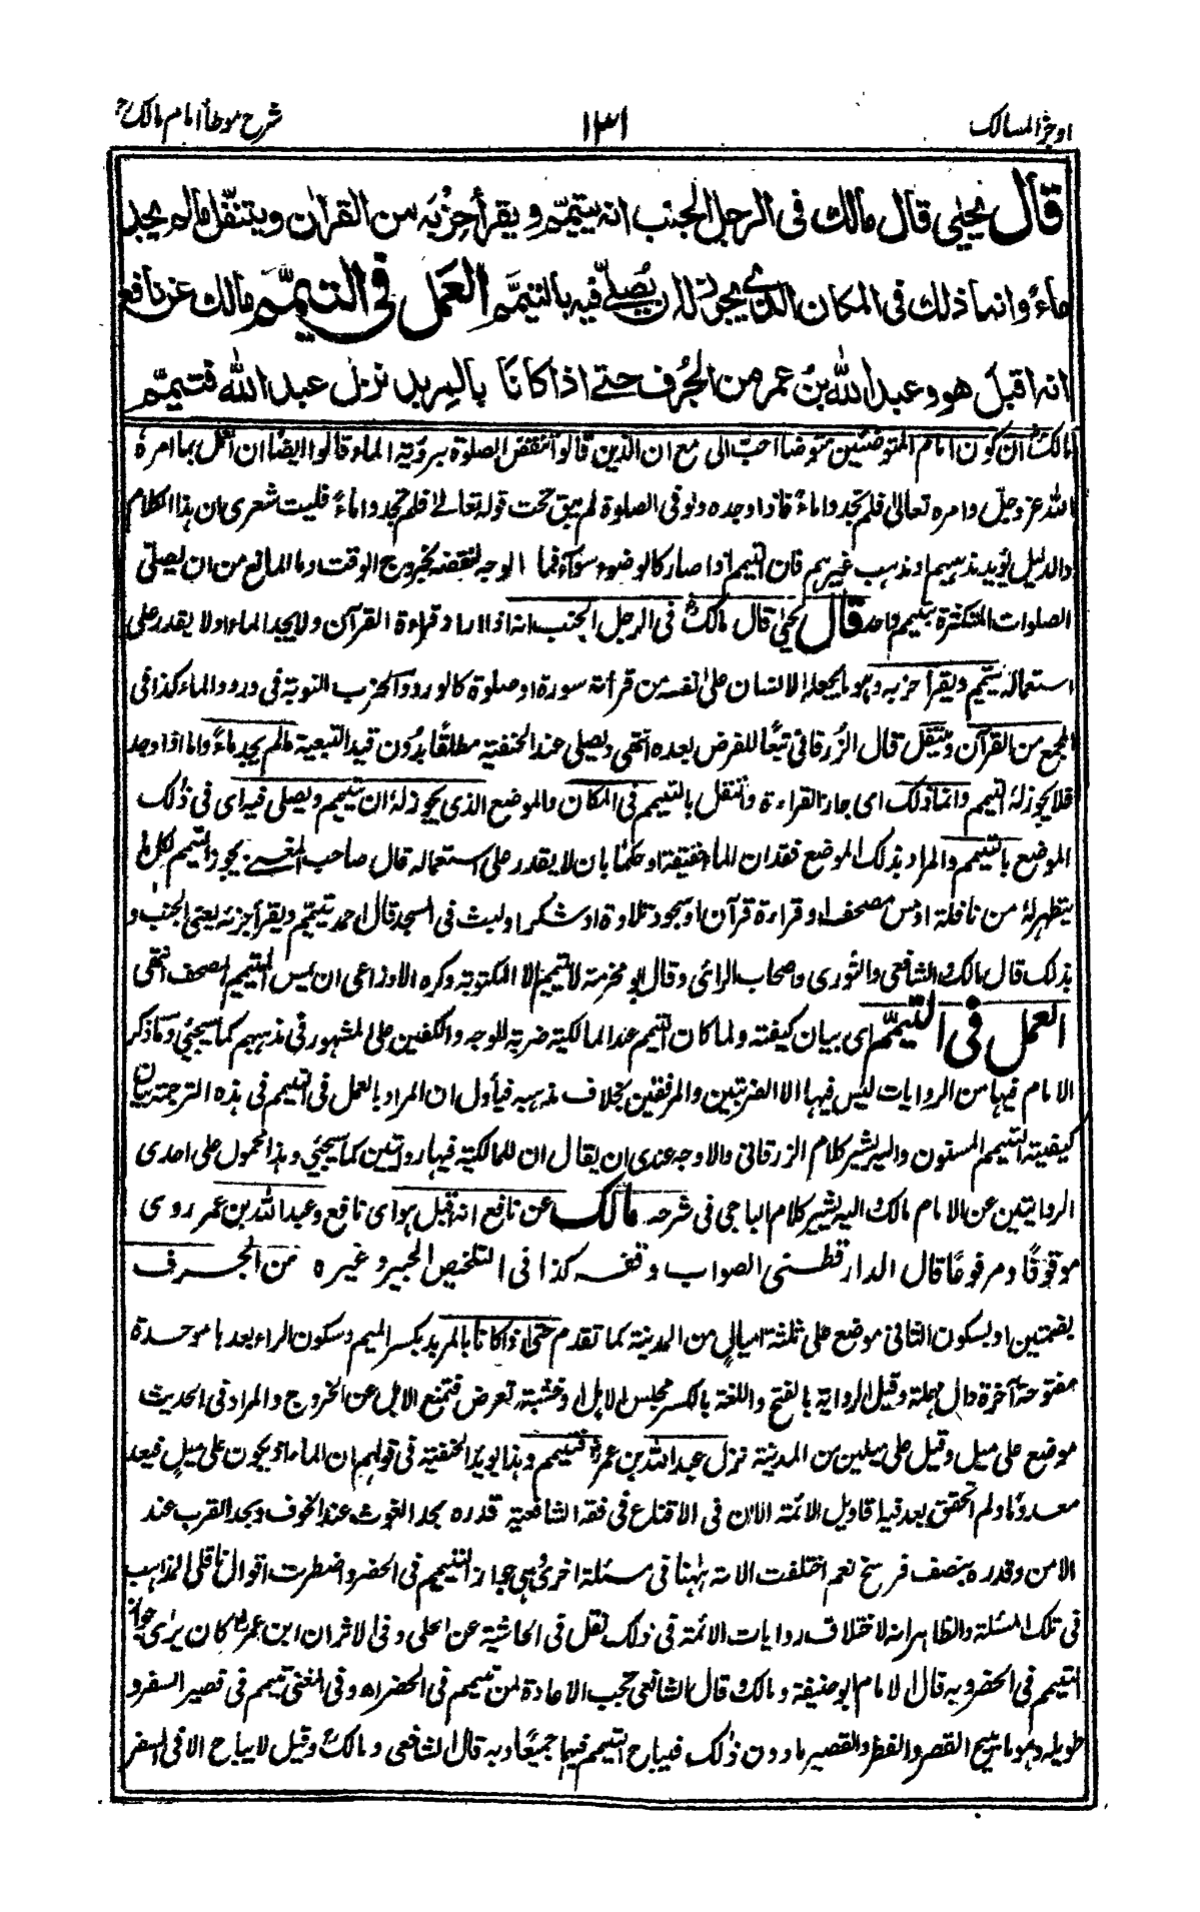 اوجز المسالك ١٣١ شرح موطأ امام مالكؒ
قال يحيٰى قال مالك فى الرجل الجنب انه يتيمّم ويقرأ حِزْبَه من القراٰن ويتنفّل مالم يجد
ماءً وانما ذلك فى المكان الذى يجوز له ان يُصلّے فيه بالتيمّم العَمل فى التيمّم مالك عن نافع
انه اقبل هو وعبد الله بن عمر من الجُرُف حتے اذا كانَا بالمِربد نزل عبد الله فتيمّم
مالك ان يكون امام المتوضئين متوضأ احبّ الى مع ان الذين قالوا تنتقض الصلوة برؤية الماء وقالوا ايضًا ان العمل بما امره
الله عز وجل وامره تعالى فلم تجدوا ماءً فاذا وجده ولو فى الصلوة لم يبق تحت قوله تعالىٰ فلم تجدوا ماءً فليت شعرى ان هذا الكلام
والدليل يؤيد مذهبهم او مذهب غيرهم فان التيمم اذا صار كالوضوء سواءً فما الوجه لنقضه بخروج الوقت وما المانع من ان يصلى
الصلوات المتكثرة بتيمم واحد قال يحيىٰ قال مالكؒ فى الرجل الجنب انه اذا اراد قراءة القرآن ولا يجد الماء او لا يقدر على
استعماله يتيمم ويقرأ حزبه وهو ما يجعله الانسان علىٰ نفسه من قراءة سورة او صلوة كالورد والحزب النوبة فى ورود الماء كذا فى
المجمع من القرآن ويتنفل قال الزرقانى تبعًا للفرض بعده انتهى ويصلى عند الحنفية مطلقًا بدون قيد التبعية مالم يجد ماءً واما اذا وجد
فلا يجوز له التيمم وانما ذلك اى جاز القراءة والتنفل بالتيمم فى المكان والموضع الذى يجوز له ان يتيمم ويصلى فيه اى فى ذلك
الموضع بالتيمم والمراد بذلك الموضع فقدان الماء حقيقة او حكمًا بان لا يقدر على استعماله قال صاحب المغنى يجوز التيمم لكل ما
يتطهر له من نافلة او مس مصحف او قراءة قرآن او سجود تلاوة او شكر او لبث فى المسجد قال احمد يتيمم ويقرأ جزئه يعنى الجنب و
بذلك قال مالك والشافعى والثورى واصحاب الرائى وقال ابو مخرمة لا يتيمم الا لمكتوبة وكره الاوزاعى ان يمس المتيمم المصحف انتهى
العمل فى التيمّم اى بيان كيفته ولما كان التيمم عند المالكية ضربة للوجه والكفين على المشهور فى مذهبهم كما سيجئ وما ذكر
الامام فيها من الروايات ليس فيها الا الضربتين والمرفقين بخلاف مذهبه فيأول ان المراد بالعمل فى التيمم فى هذه الترجمة بيان
كيفية التيمم المسنون واليه يشير كلام الزرقانى والاوجه عندى ان يقال ان للمالكية فيها روايتين كما سيجئ وهذا محمول على احدى
الروايتين عن الامام مالك واليه يشير كلام الباجى فى شرحه مالك عن نافع انه اقبل هو اى نافع وعبد الله بن عمر روى
موقوفًا ومرفوعًا قال الدارقطنى الصواب وقفه كذا فى التلخيص الحبير وغيره من الجرف
بضمتين او بسكون الثانى موضع على ثلثة اميال من المدينة كما تقدم حتى اذا كانا بالمربد بكسر الميم وسكون الراء بعدها موحدة
مفتوحة آخره دال مهملة وقيل الرواية بالفتح واللغة بالكسر مجلس الابل او خشبة تعرض فتمنع الابل عن الخروج والمراد فى الحديث
موضع على ميل وقيل على ميلين من المدينة نزل عبد الله بن عمرؓ فتيمم وهذا يويد الحنفية فى قولهم ان الماء اذ يكون على ميل فيعد
معدومًا ولم اتحقق بعد فيه اقاويل الائمة الا ان فى الاقناع فى فقه الشافعية قدره بحد الغوث عند الخوف وبحد القرب عند
الامن وقدره بنصف فرسخ نعم اختلفت الامة ههنا فى مسئلة اخرىٰ هى جواز التيمم فى الحضر واضطرت اقوال ناقلى المذاهب
فى تلك المسئلة والظاهر انه لاختلاف روايات الائمة فى ذلك نقل فى الحاشية عن المحلى وفى الاثر ان ابن عمرؓ كان يرىٰ جواز
التيمم فى الحضر وبه قال الامام ابو حنيفة ومالك وقال الشافعى تجب الاعادة لمن تيمم فى الحضر اه وفى المغنى تيمم فى قصير السفر و
طويله وهو ما يبيح القصر والفطر والقصير ما دون ذلك فيباح التيمم فيهما جميعًا وبه قال الشافعى ومالك وقيل لا يباح الا فى السفر